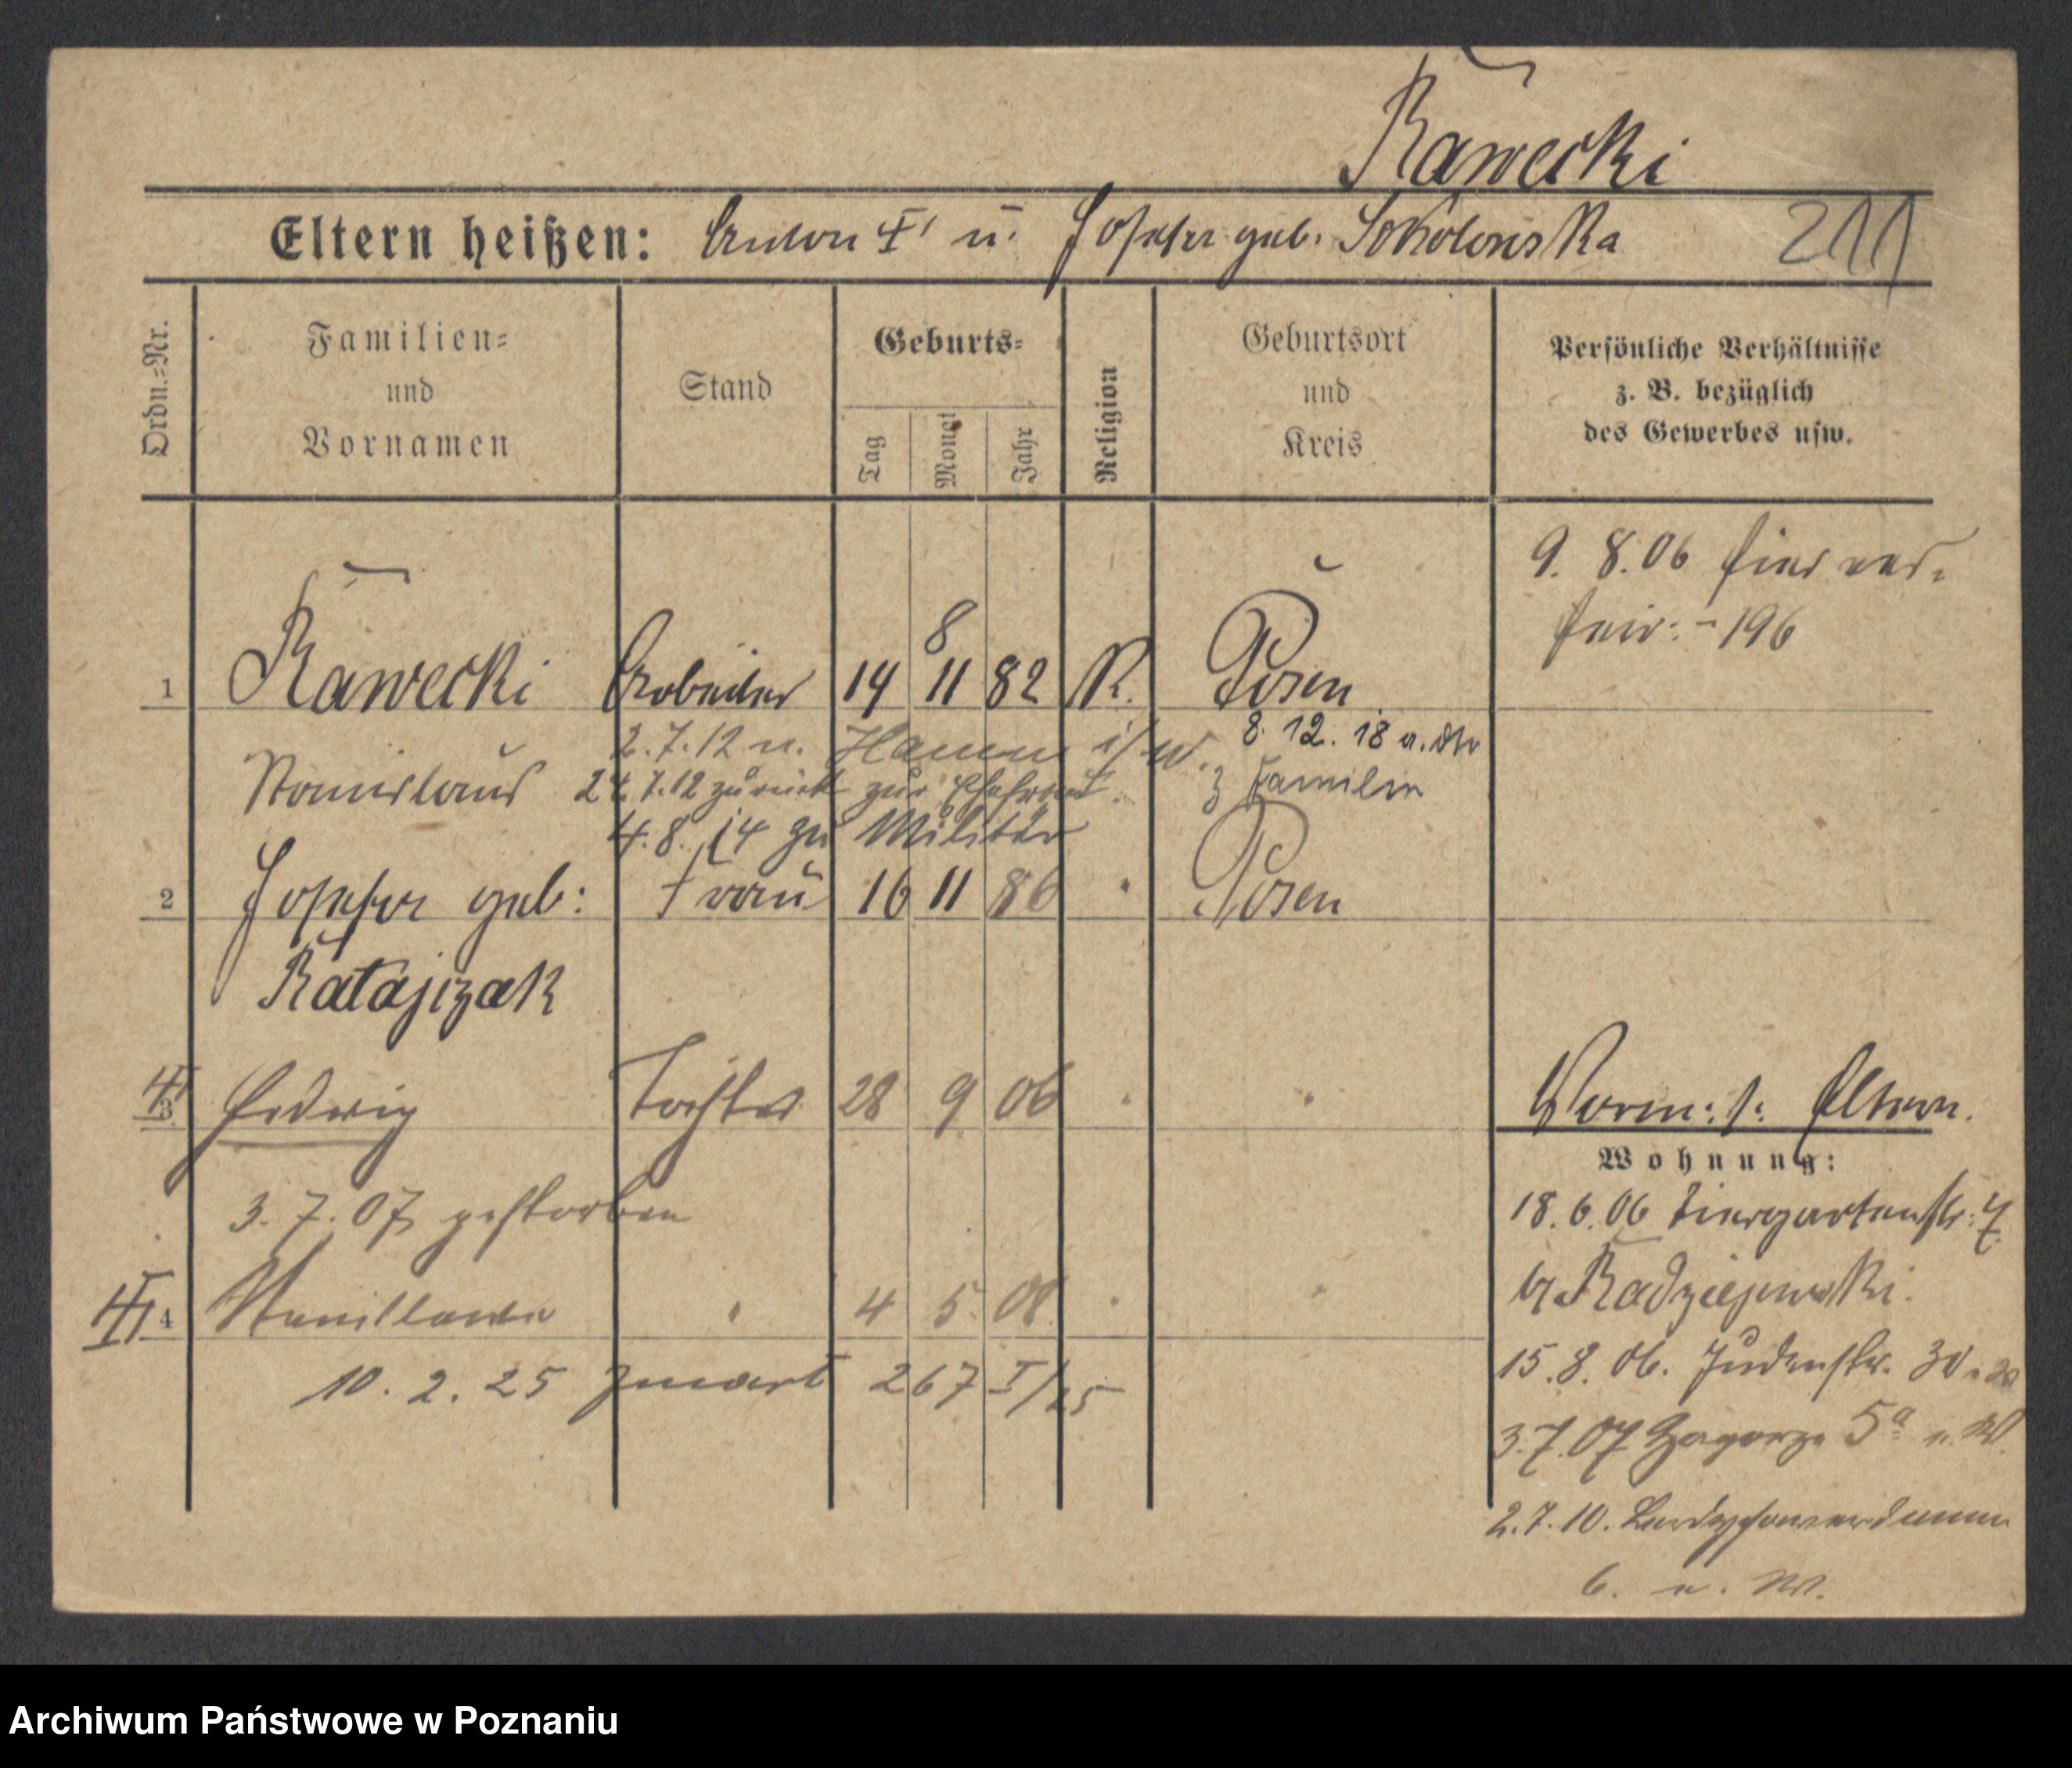 Rawecki
Eltern heißen: Anton † u. Josefa geb. Sokolowska 211
Ordn.=Nr.
Familien=
und
Vornamen
Stand
Geburts=
Tag
Monat
Jahr
Religion
Geburtsort
und
Kreis
Persönliche Verhältnisse
z. B. bezüglich
des Gewerbes usw.
9. 8. 06 hier ver=
heir: - 196
8
1 Rawecki Arbeiter 14 11 82 K. Posen
2.7.12 n. Hamm i/W. 8. 12. 18 v.
Stanislaus 24.7.12 zurück zur Ehefrau. z Familie
4. 8. 14 zu Militär
2 Josefa geb: Frau 16 11 86 " Posen
Ratajczak
† 3 Hedwig Tochter 28 9 06 " "
Vorm: s. Eltern.
3. 7. 07 gestorben
Wohnung:
18. 6. 06 Tiergartenstr. 7
b/ Radziejewski.
4 Stanislawa " 4 5 08 " "
15. 8. 06. Judenstr. 30
10. 2. 25 267 I/25
3. 7. 07 Zagorze 5a u. W.
2. 7. 10.
6. u. W.
Archiwum Państwowe w Poznaniu